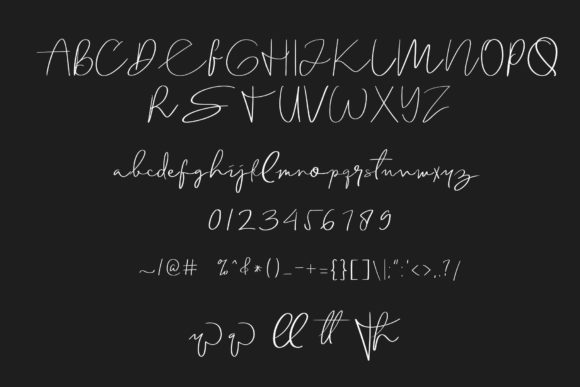 ABCDEFGHIJKLMNOPQ
RSTUVWXYZ
abcdefghijklmnopqrstuvwxyz
0123456789
~/@# %^&*()_-+={}[]\|;":'<>,.?/
ll tt Th